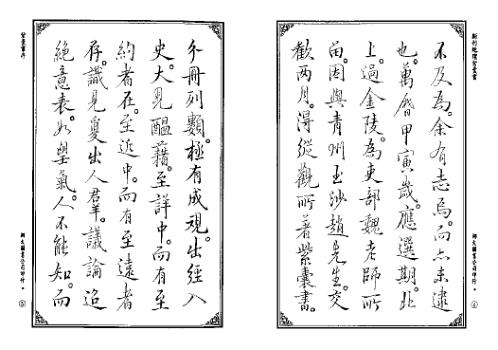 新刊地理紫囊書
不及為。余有志焉。而亦未逮
也。萬曆甲寅歲。應選期北
上。過金陵。為吏部魏老師所
留。因與青州玉沙趙先生。交
歡兩月。得從觀所著紫囊書。
④
紫囊書序
分冊列類。極有成規。出經入
史。大見醞藉。至詳中。而有至
約者在。至近中。而有至遠者
存。識見敻出人羣。議論迢
絶意表。如璺氣。人不能知。而
⑤